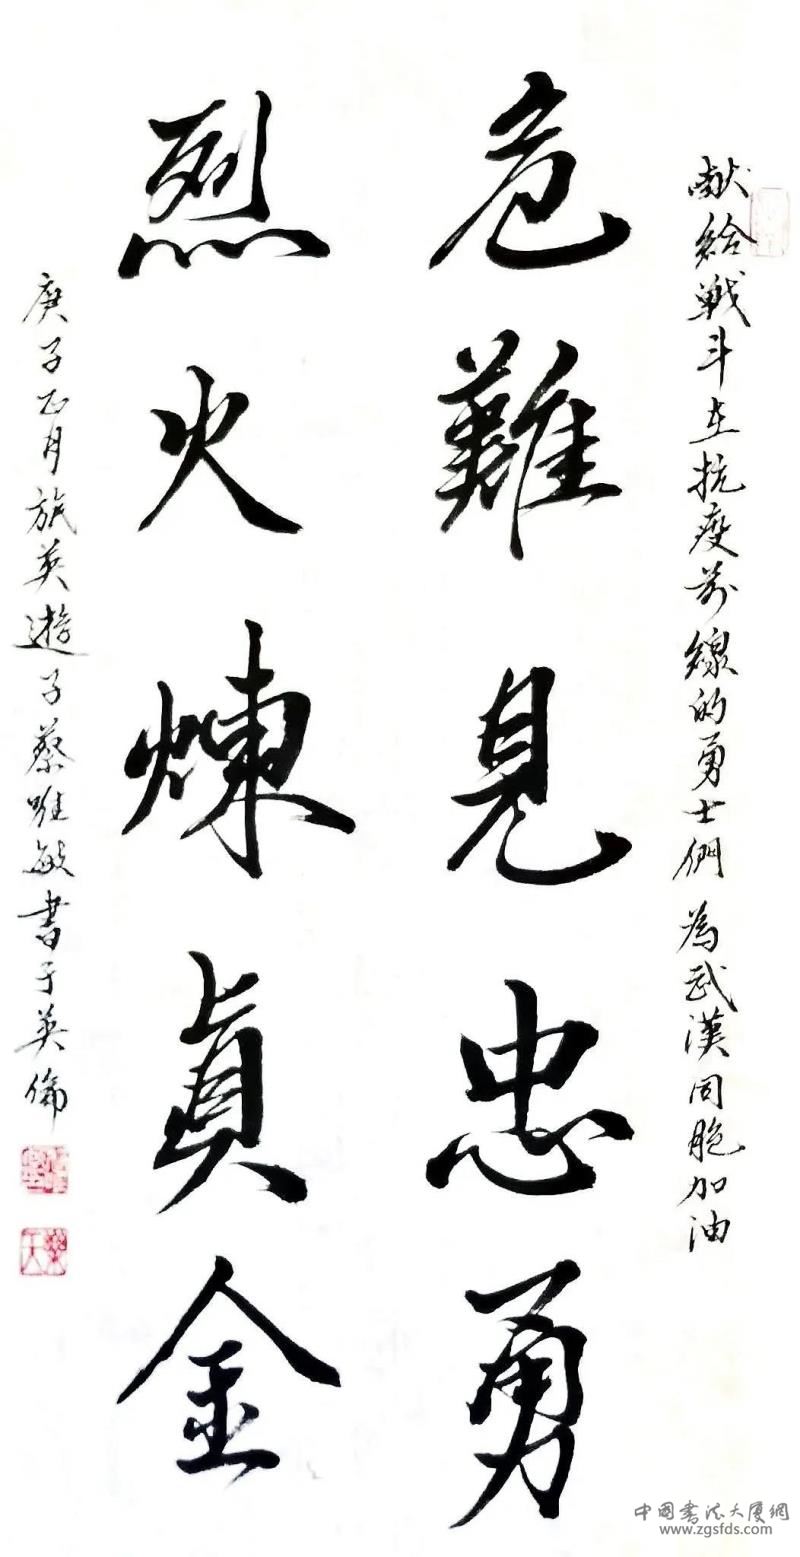 献给戰斗在抗疫前線的勇士們 為武漢同胞加油
危難見忠勇
烈火煉真金
庚子正月旅英遊子蔡唯敏書于英倫
中國書法大厦網
www.zgsfds.com